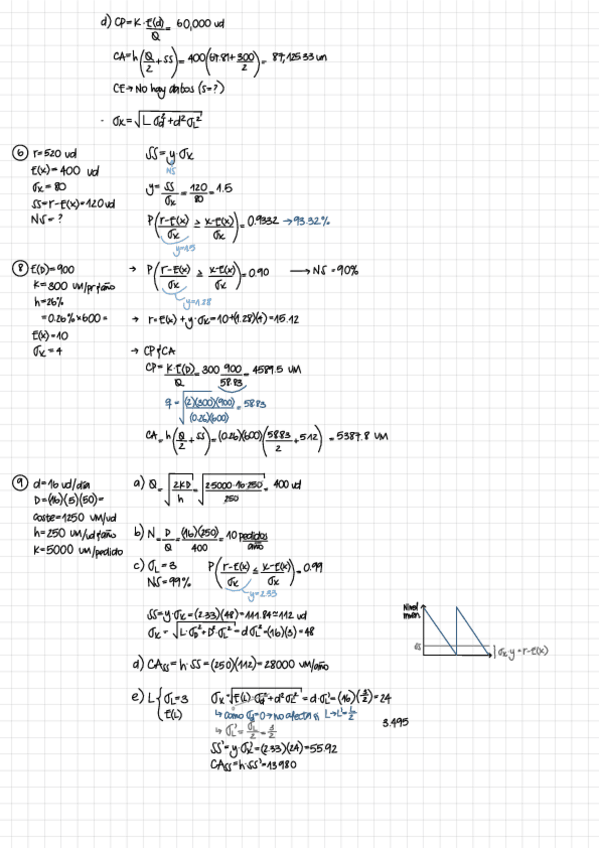 d) CP = K · E(d)/Q = 60,000 ud
CA = h(Q/2 + SS) = 400(67.81 + 300/2) = 87,125.33 um
CE → No hay datos (s=?)
· σx = √(L σd² + d² σL²)
⑥ r = 520 ud
E(x) = 400 ud
σx = 80
SS = r - E(x) = 120 ud
NS = ?
SS = y · σx
NS
y = SS/σx = 120/80 = 1.5
P(r-E(x)/σx ≥ x-E(x)/σx) = 0.9332 → 93.32%
y=1.5
⑧ E(D) = 900
K = 300 um/pr/año
h = 26%
= 0.26% × 600 =
E(x) = 10
σx = 4
→ P(r-E(x)/σx ≥ x-E(x)/σx) = 0.90 → NS = 90%
y=1.28
→ r = E(x) + y · σx = 10 + (1.28)(4) = 15.12
→ CP y CA
CP = K·E(D)/Q = 300 900/58.83 = 4589.5 UM
q = √((2)(300)(900)/(0.26)(600)) = 58.83
CA = h(Q/2 + SS) = (0.26)(600)(58.83/2 + 5.12) = 5387.8 UM
⑨ d = 16 ud/día
D = (16)(5)(50) =
coste = 1250 UM/ud
h = 250 UM/ud·año
K = 5000 um/pedido
a) Q = √(2KD/h) = √(2·5000·16·250/250) = 400 ud
b) N = D/Q = (16)(250)/400 = 10 pedidos/año
c) σL = 3
NS = 99%
P(r-E(x)/σx ≤ x-E(x)/σx) = 0.99
y=2.33
SS = y · σx = (2.33)(48) = 111.84 ≈ 112 ud
σx = √(L·σD² + D²·σL²) = d σL² = (16)(3) = 48
Nivel
inven.
SS
σx y = r - E(x)
d) CAss = h · SS = (250)(112) = 28000 UM/año
e) L { σL = 3
E(L)
σx = √(E(L)·σd² + d²σL²) = d·σL' = (16)(3/2) = 24
↳ como σd = 0 → no afecta si L → L' = L/2
3.495
↳ σL' = σL/2 = 3/2
SS' = y·σx' = (2.33)(24) = 55.92
CAss = h·SS' = 13980